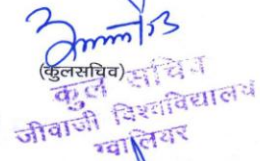 (कुलसचिव)
कुल सचिव
जीवाजी विश्वविद्यालय
ग्वालियर